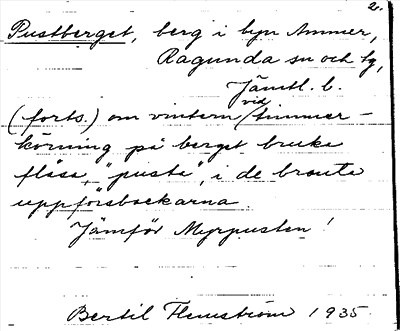 2.
Pustberget, berg i byn Ammer,
Ragunda sn och tg,
Jämtl. l.
(forts.) om vintern vid timmer-
körning på berget bruka
flåsa, "pusta", i de branta
uppförsbackarna.
Jämför Myrpusten!
Bertil Flemström 1935